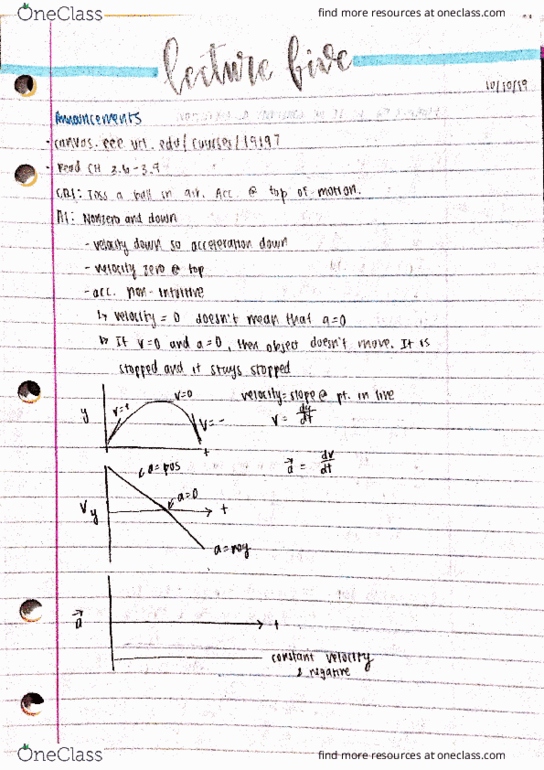 OneClass find more resources at oneclass.com
lecture five
10/10/19
Announcements
- canvas.eee.uci.edu/courses/19197
- Read CH 3.6-3.9
Toss a ball in air. Acc. @ top of motion.
A1: Nonzero and down
- velocity down so acceleration down
- velocity zero @ top
- acc. non-intuitive
↳ velocity = 0 doesn't mean that a=0
↳ If v=0 and a=0, then object doesn't move. It is
stopped and it stays stopped
y v=+ v=0 v=- t
velocity=slope @ pt. in line
v = dy/dt
a = dv/dt
Vy a=pos a=0 t
a=neg
a t
constant velocity
& negative
OneClass find more resources at oneclass.com